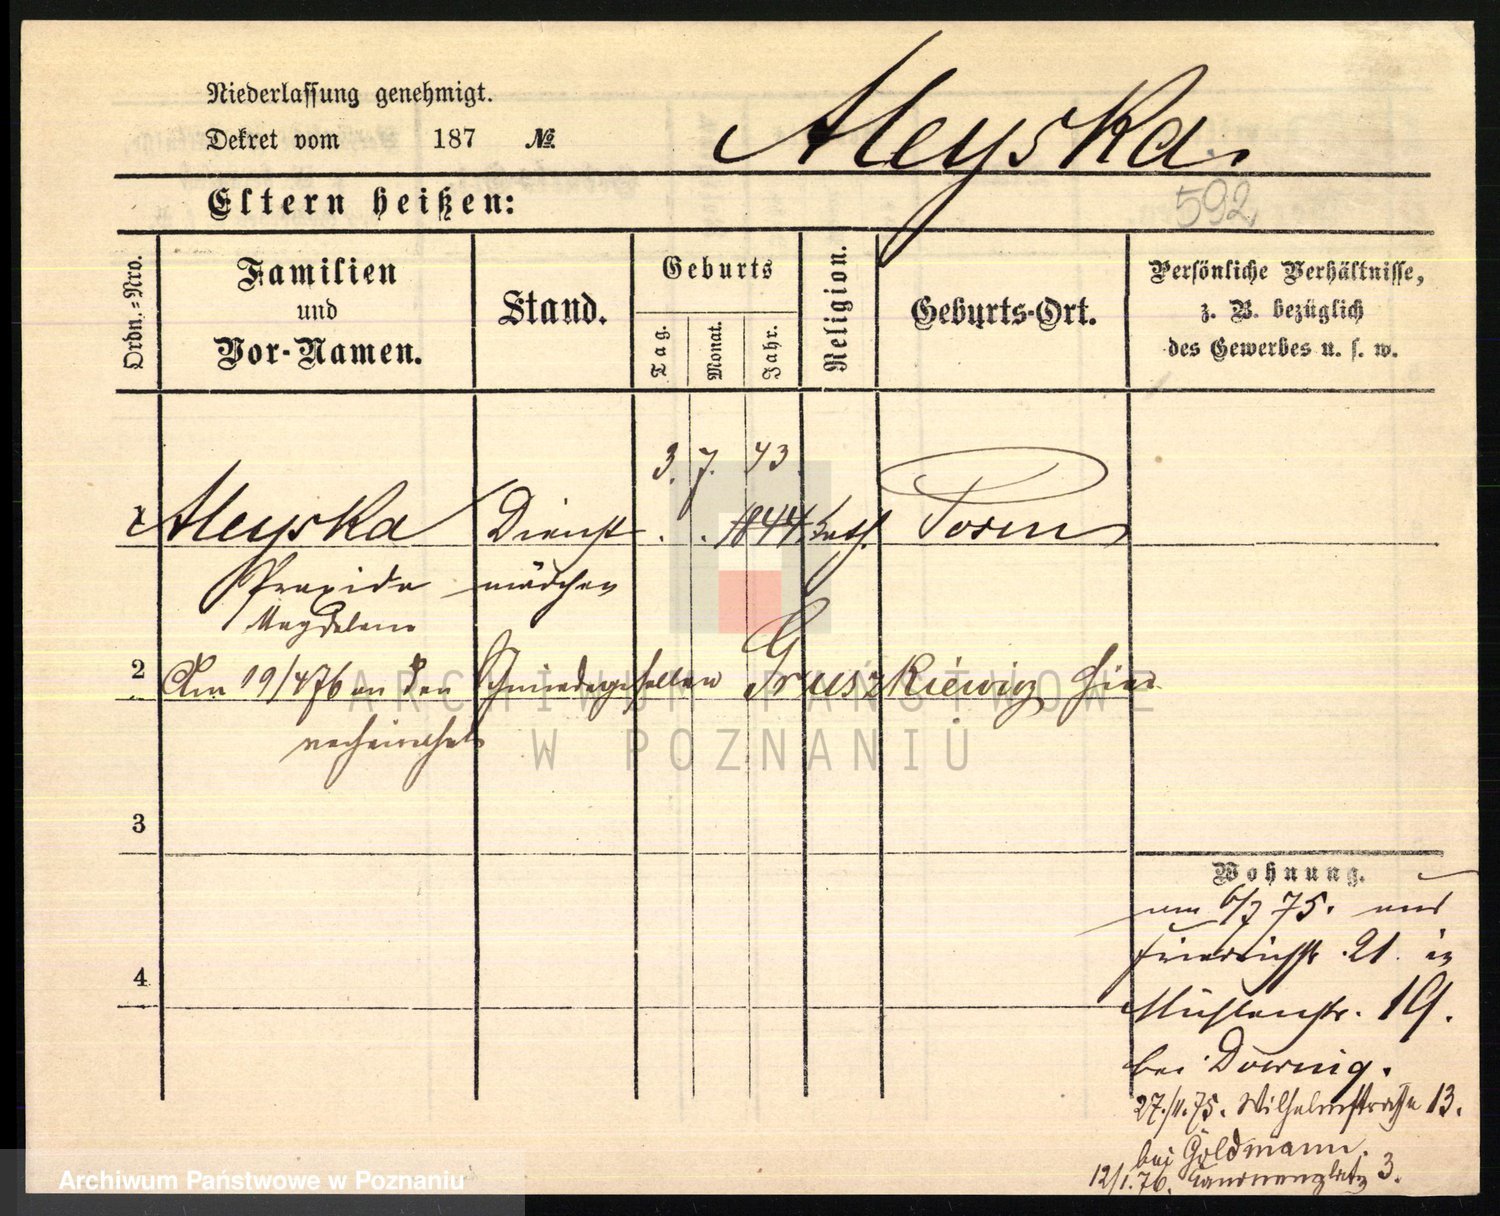 Niederlassung genehmigt.
Dekret vom 187 №
Aleyska.
Eltern heißen:
592,
Ordn.-Nro.
Familien
und
Vor-Namen.
Stand.
Geburts
Tag.
Monat.
Jahr.
Religion.
Geburts-Ort.
Persönliche Verhältnisse,
z. B. bezüglich
des Gewerbes u. s. w.
3. 7. 43.
1 Aleyska Dienst . . 1844. kath. Posen
Praxida mädchen
Magdalena
2 Am 19/4 76 an den Schmiedegesellen Gruszkiewicz hier
verheirathet
ARCHIWUM PAŃSTWOWE
W POZNANIU
3
4
Wohnung.
75. aus
Friedrichstr. 21. in
Mühlenstr. 19.
bei
27./11. 75. Wilhelmstraße 13.
bei Goldmann.
12/1. 76. 3.
Archiwum Państwowe w Poznaniu